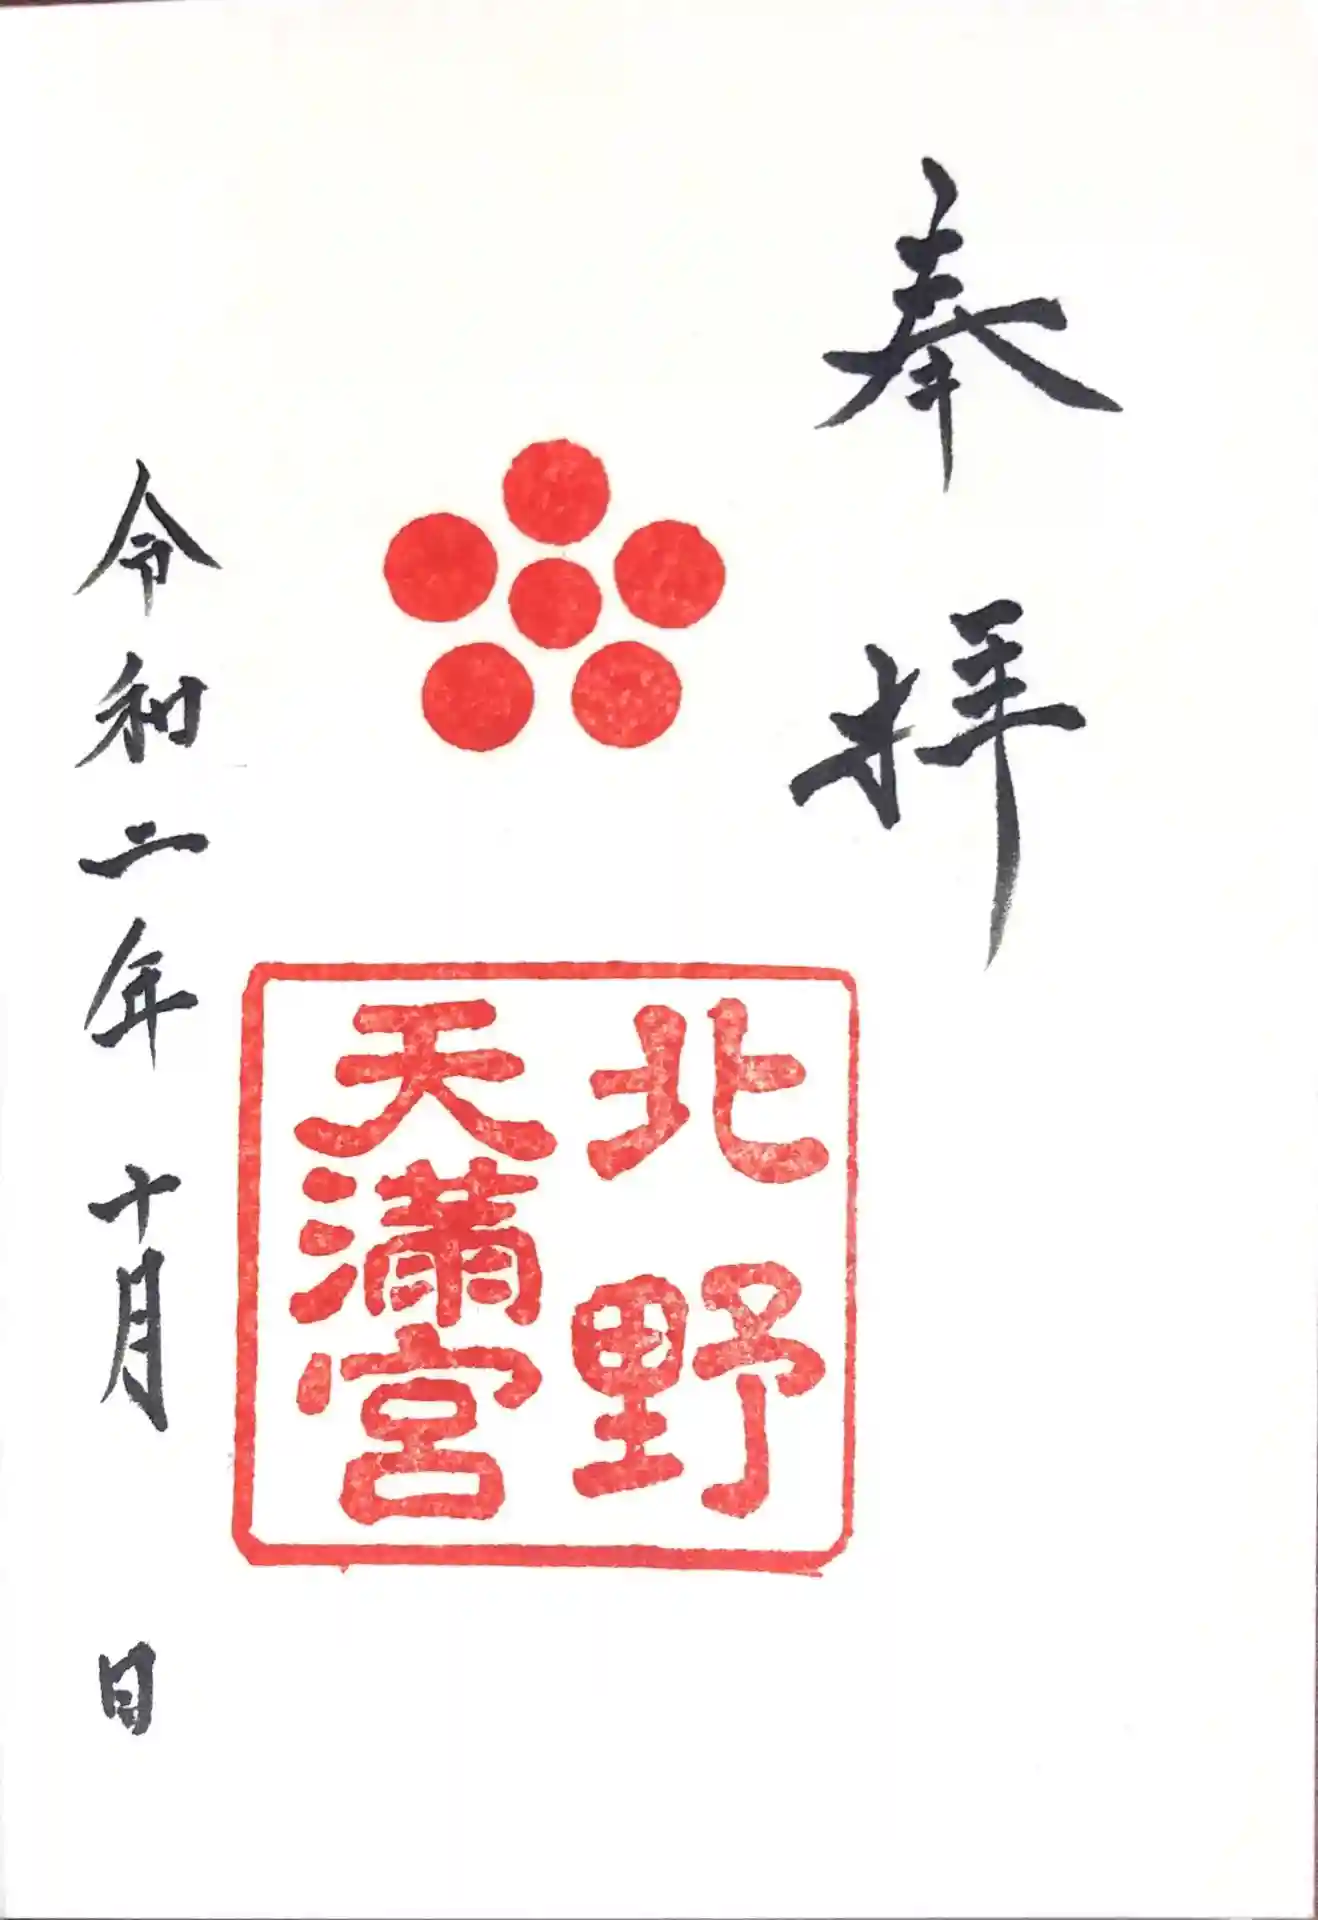 奉拝
北野
天満宮
令和二年十月 日